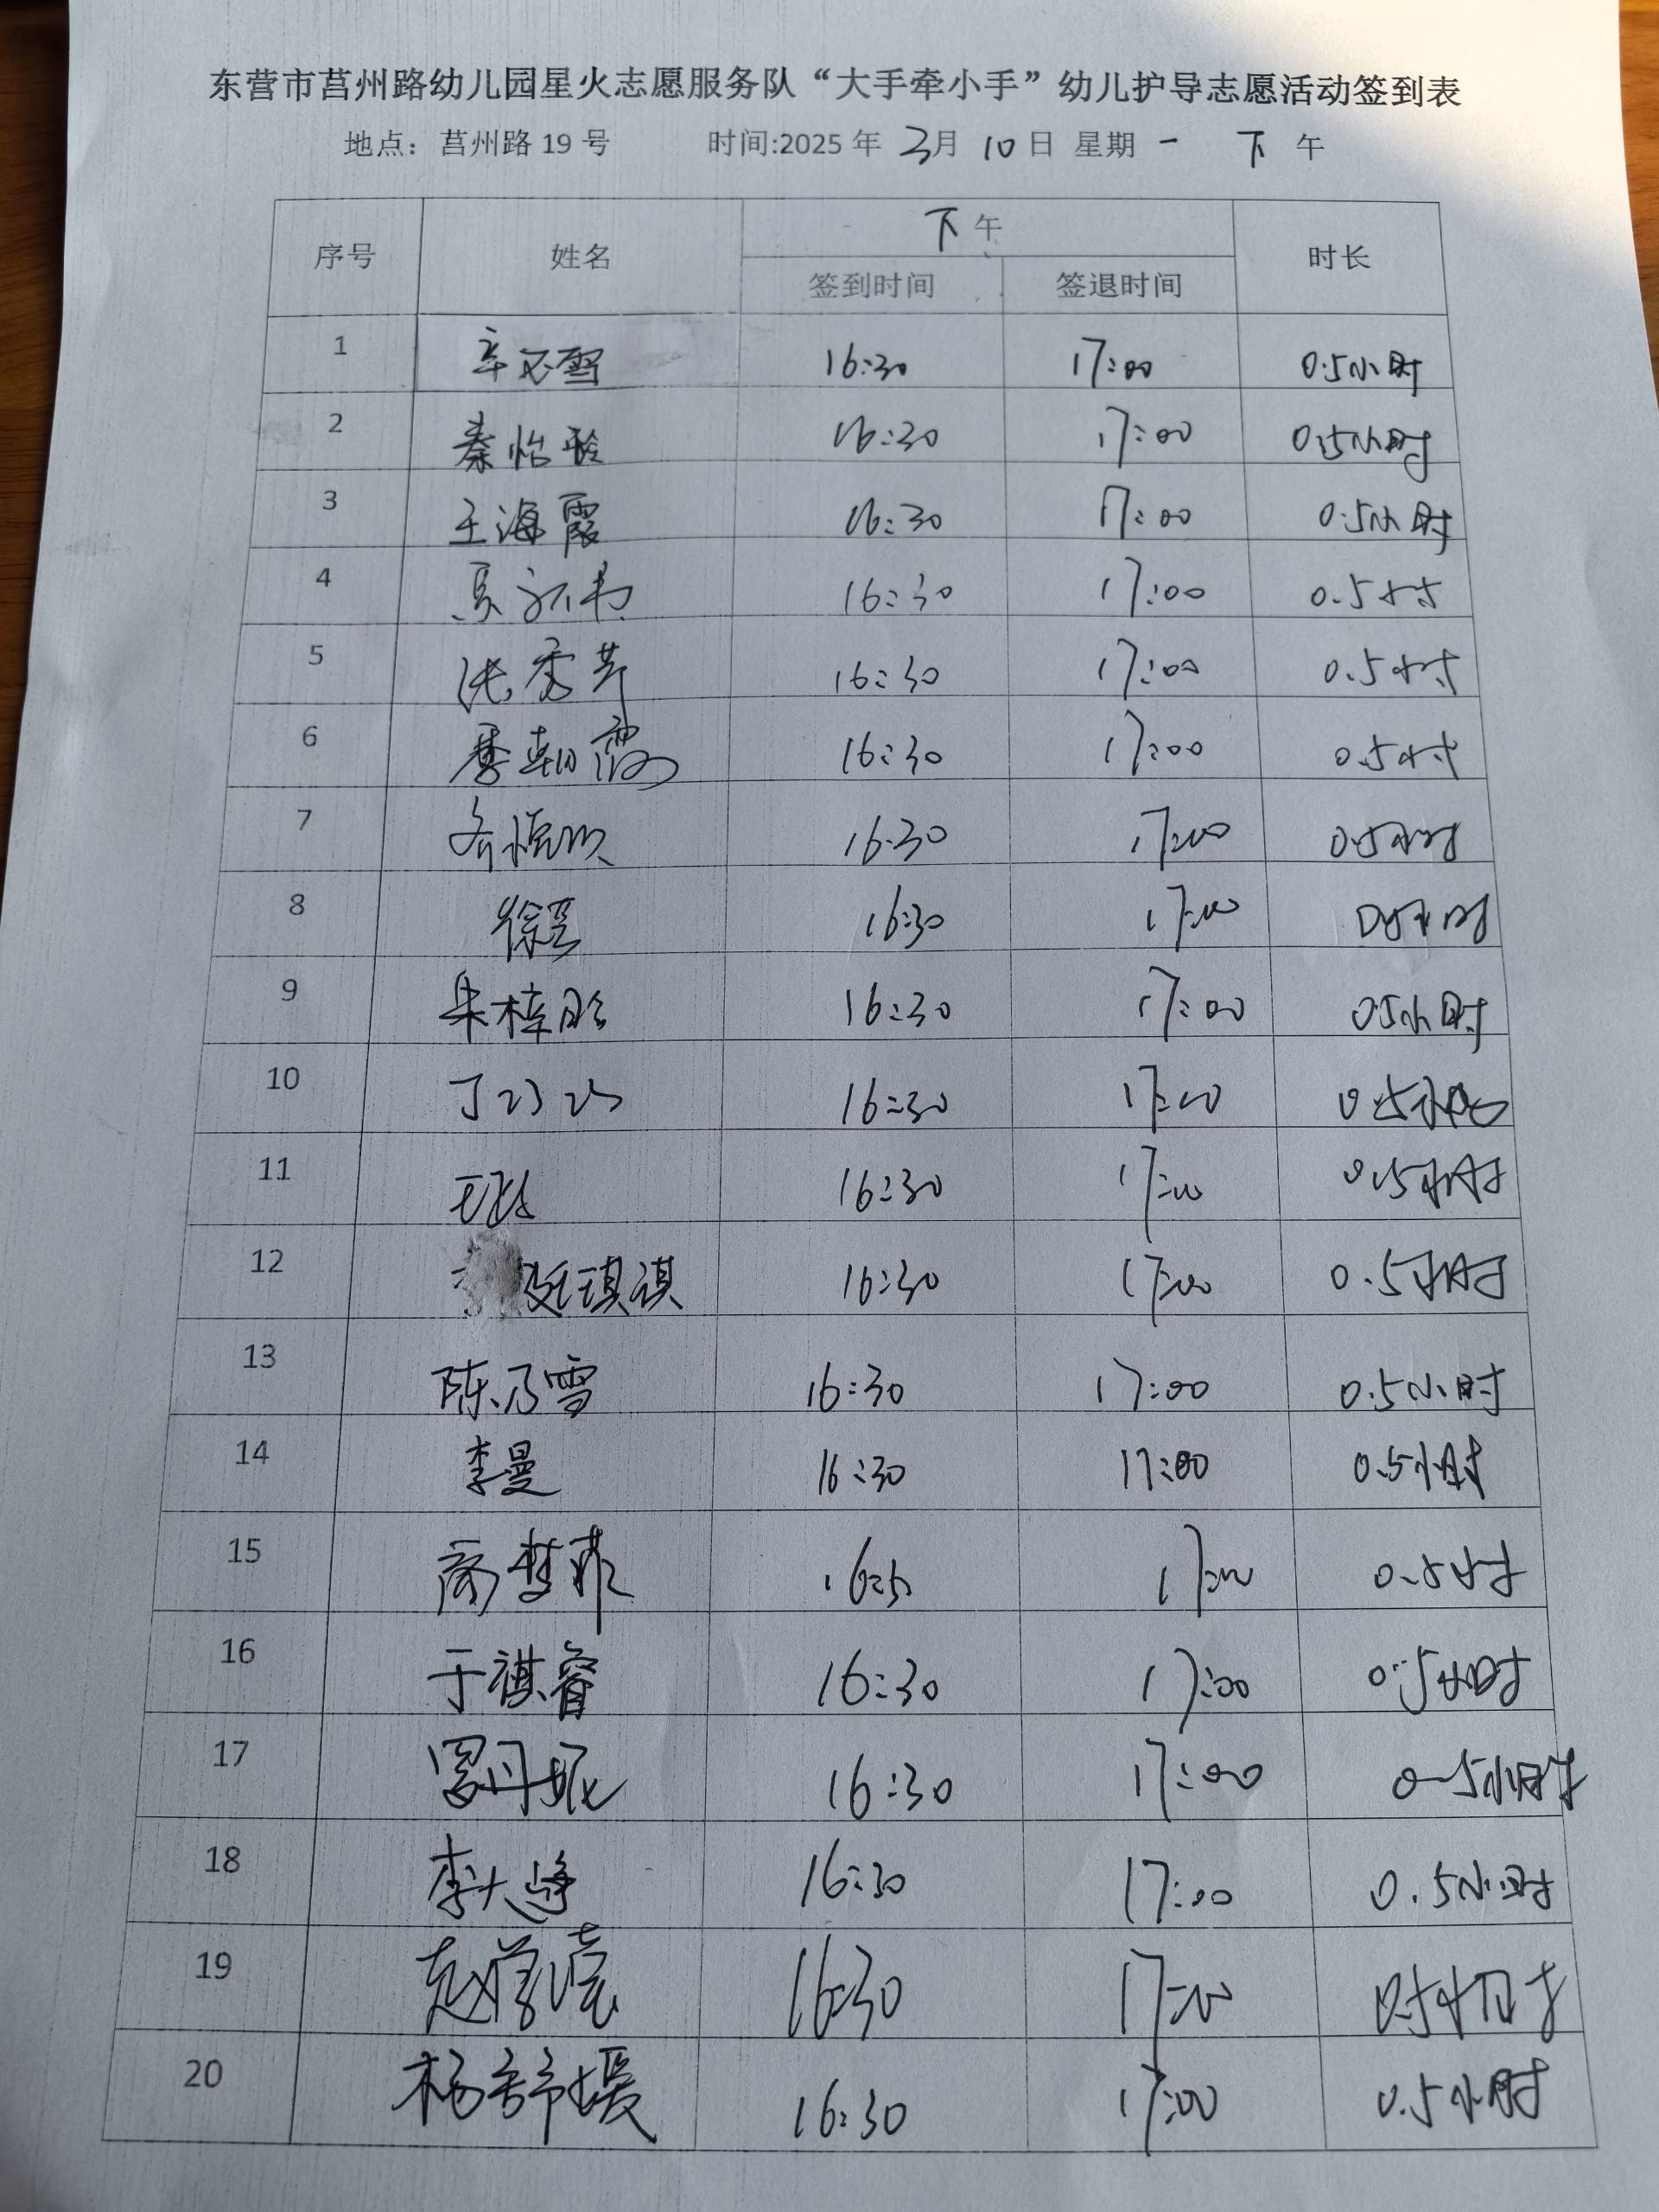 东营市莒州路幼儿园星火志愿服务队“大手牵小手”幼儿护导志愿活动签到表
地点：莒州路 19 号 时间:2025 年 3月 10日 星期 一 下 午
序号 姓名 下午 时长
签到时间 签退时间
1 16:30 17:00 0.5小时
2 秦怡 16:30 17:00 0.5小时
3 王海霞 16:30 17:00 0.5小时
4 16:30 17:00 0.5小时
5 张秀芹 16:30 17:00 0.5小时
6 季朝霞 16:30 17:00 0.5小时
7 齐 16:30 17:00 0.5小时
8 徐 16:30 17:00 0.5小时
9 朱梓彤 16:30 17:00 0.5小时
10 丁 16:30 17:00 0.5小时
11 王 16:30 17:00 0.5小时
12 琪祺 16:30 17:00 0.5小时
13 陈乃雪 16:30 17:00 0.5小时
14 李曼 16:30 17:00 0.5小时
15 商梦菲 17:00 0.5小时
16 于祺睿 16:30 17:00 0.5小时
17 罗丹妮 16:30 17:00 0.5小时
18 李大峥 16:30 17:00 0.5小时
19 赵 16:30 17:00 0.5小时
20 杨舒媛 16:30 17:00 0.5小时